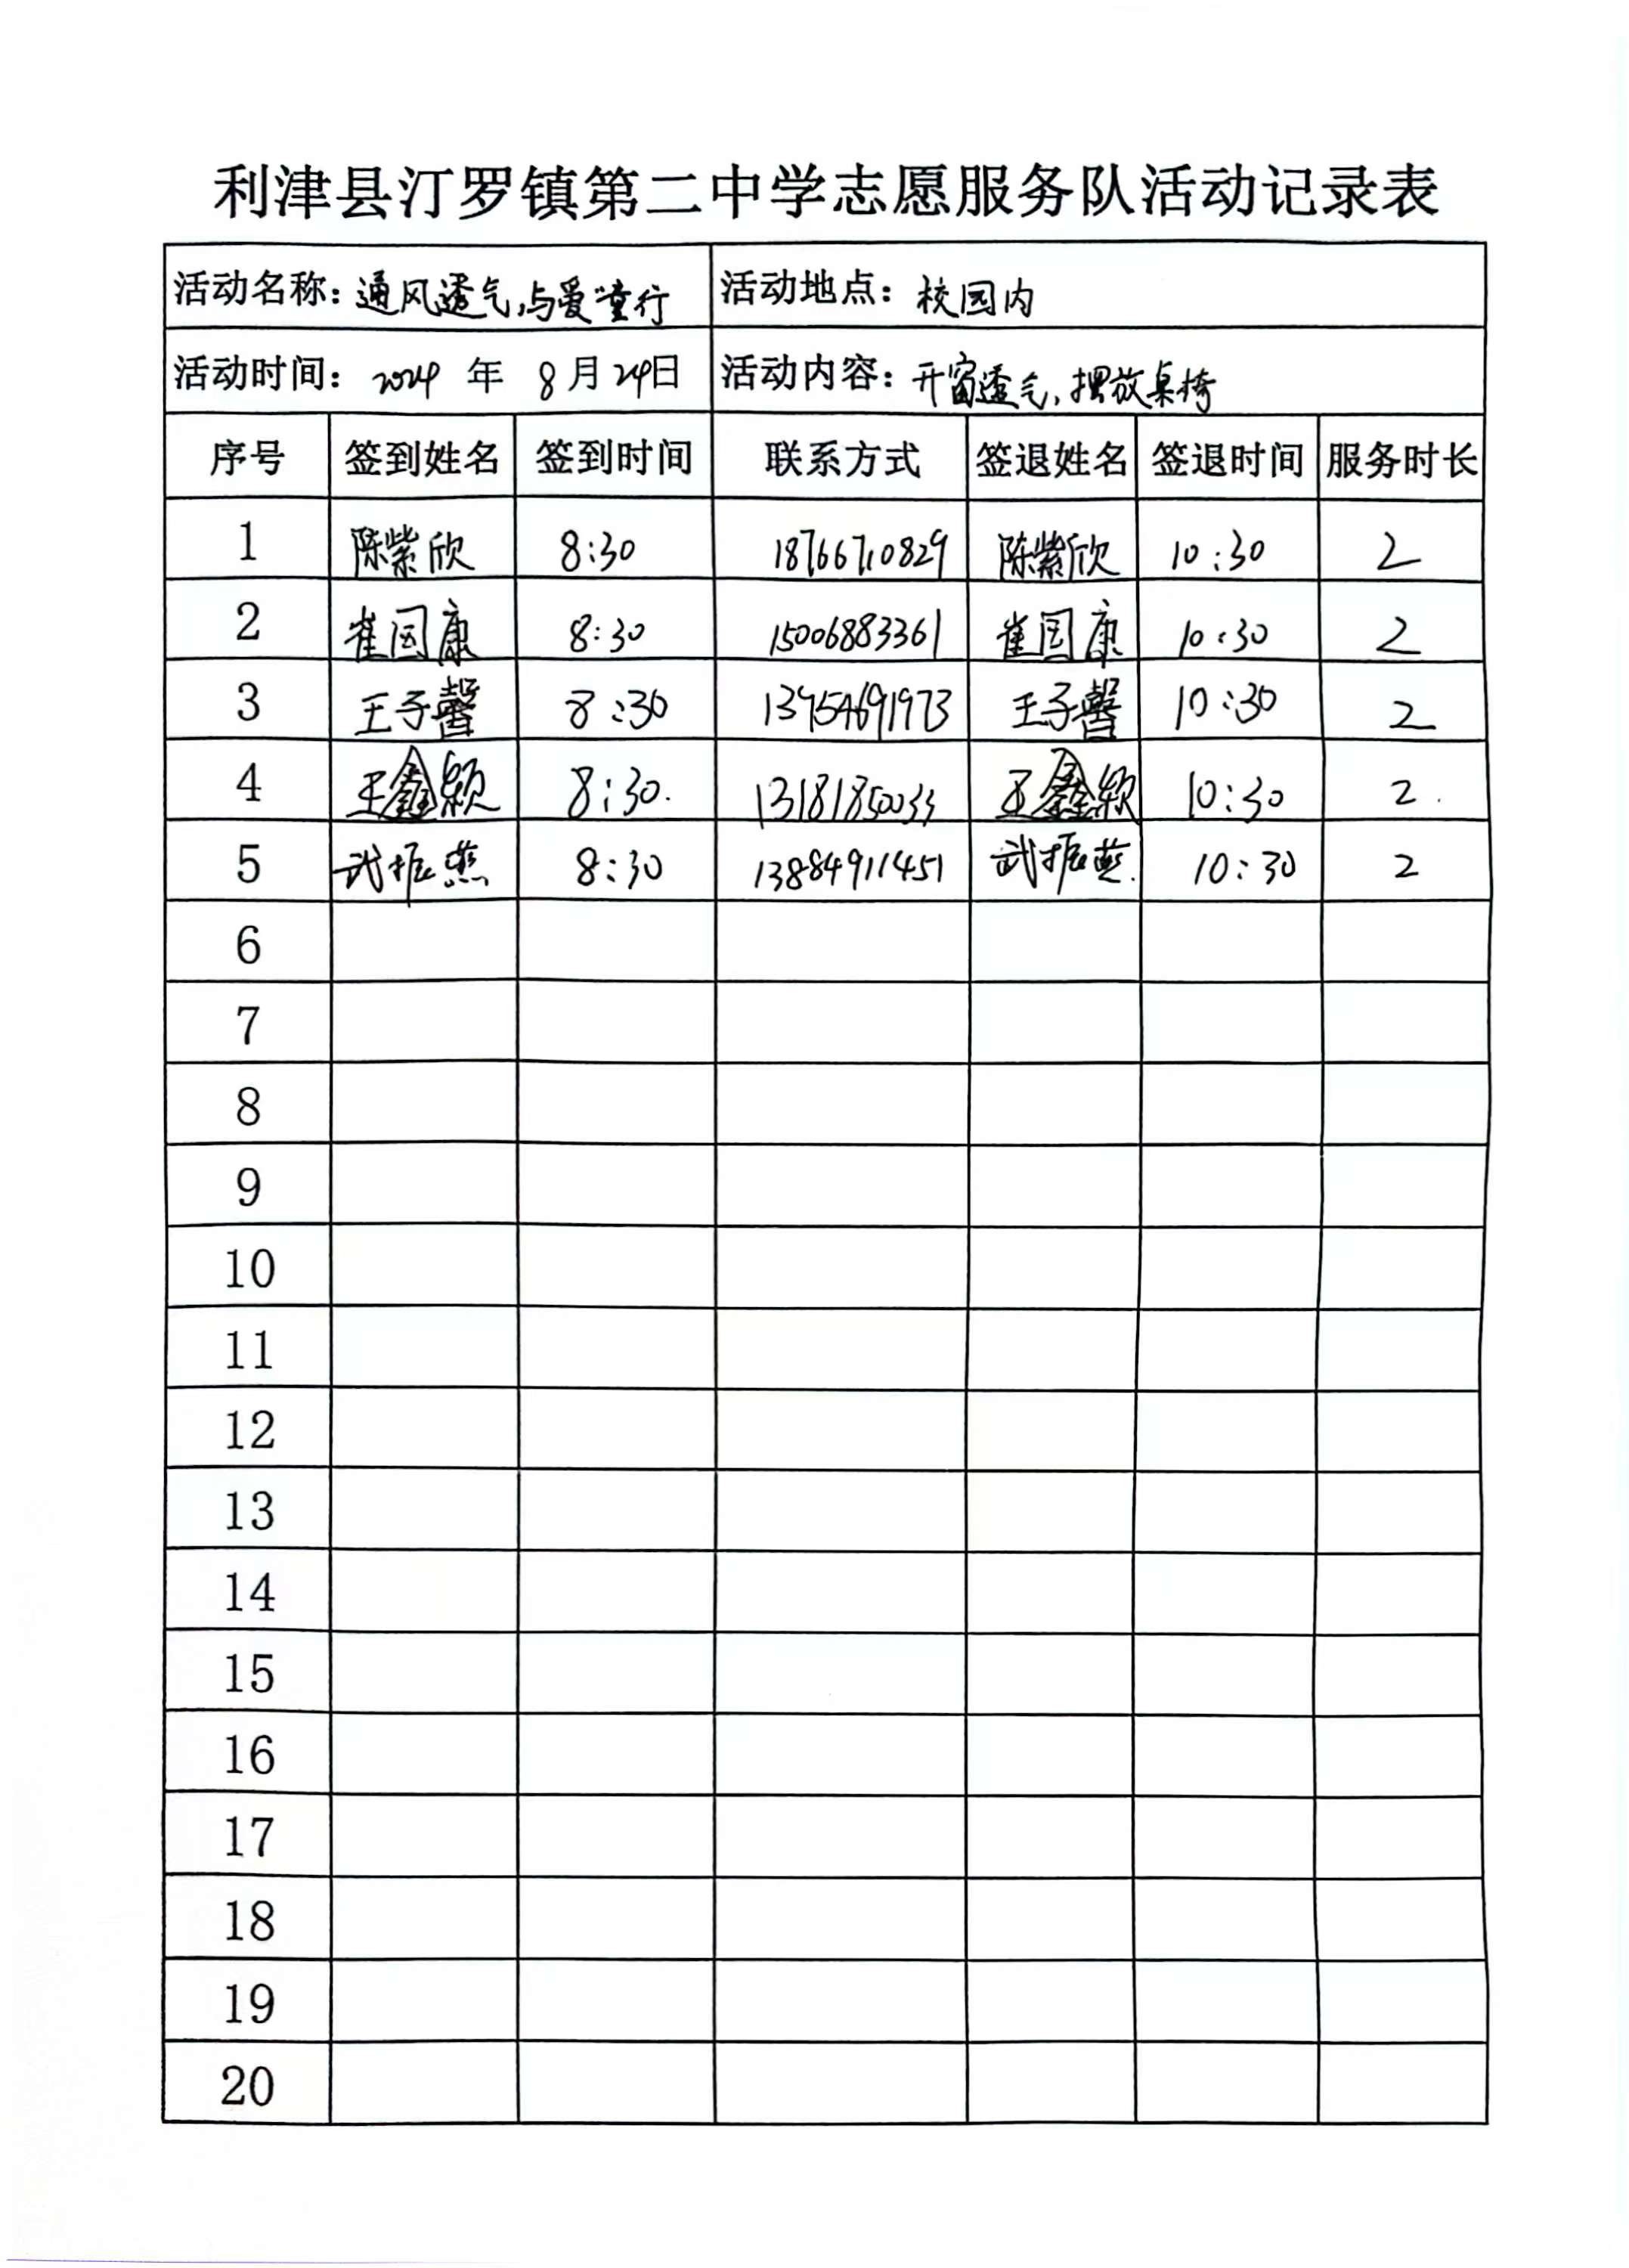 利津县汀罗镇第二中学志愿服务队活动记录表
活动名称：通风透气，与爱"童行 活动地点：校园内
活动时间：2024 年 8月24日 活动内容：开窗透气，摆放桌椅
序号 签到姓名 签到时间 联系方式 签退姓名 签退时间 服务时长
1 陈紫欣 8:30 18766710829 陈紫欣 10:30 2
2 崔国康 8:30 15006883361 崔国康 10:30 2
3 王子馨 8:30 13954691973 王子馨 10:30 2
4 王鑫颖 8:30. 13181850033 王鑫颖 10:30 2.
5 武振燕 8:30 13884911451 武振燕. 10:30 2
6
7
8
9
10
11
12
13
14
15
16
17
18
19
20